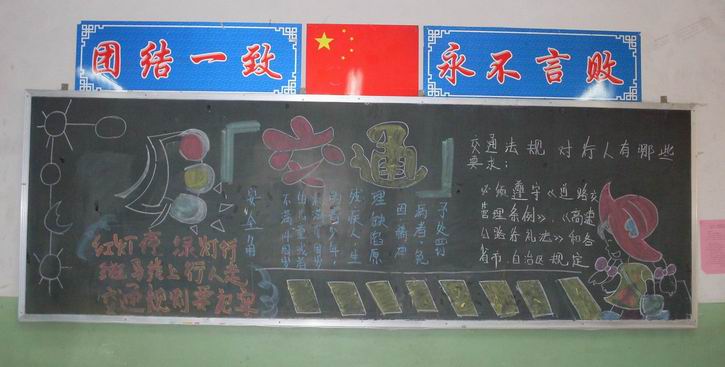 团结一致
永不言败
「交通」
红灯停 绿灯行
斑马线上行人走
交通规则要记牢
安全角
残疾人、生
理缺陷原
因精神
予处罚
交通法规对行人有哪些
要求:
必须遵守《道路交
管理条例》、《高速
公路行礼法》和各
省市、自治区规定